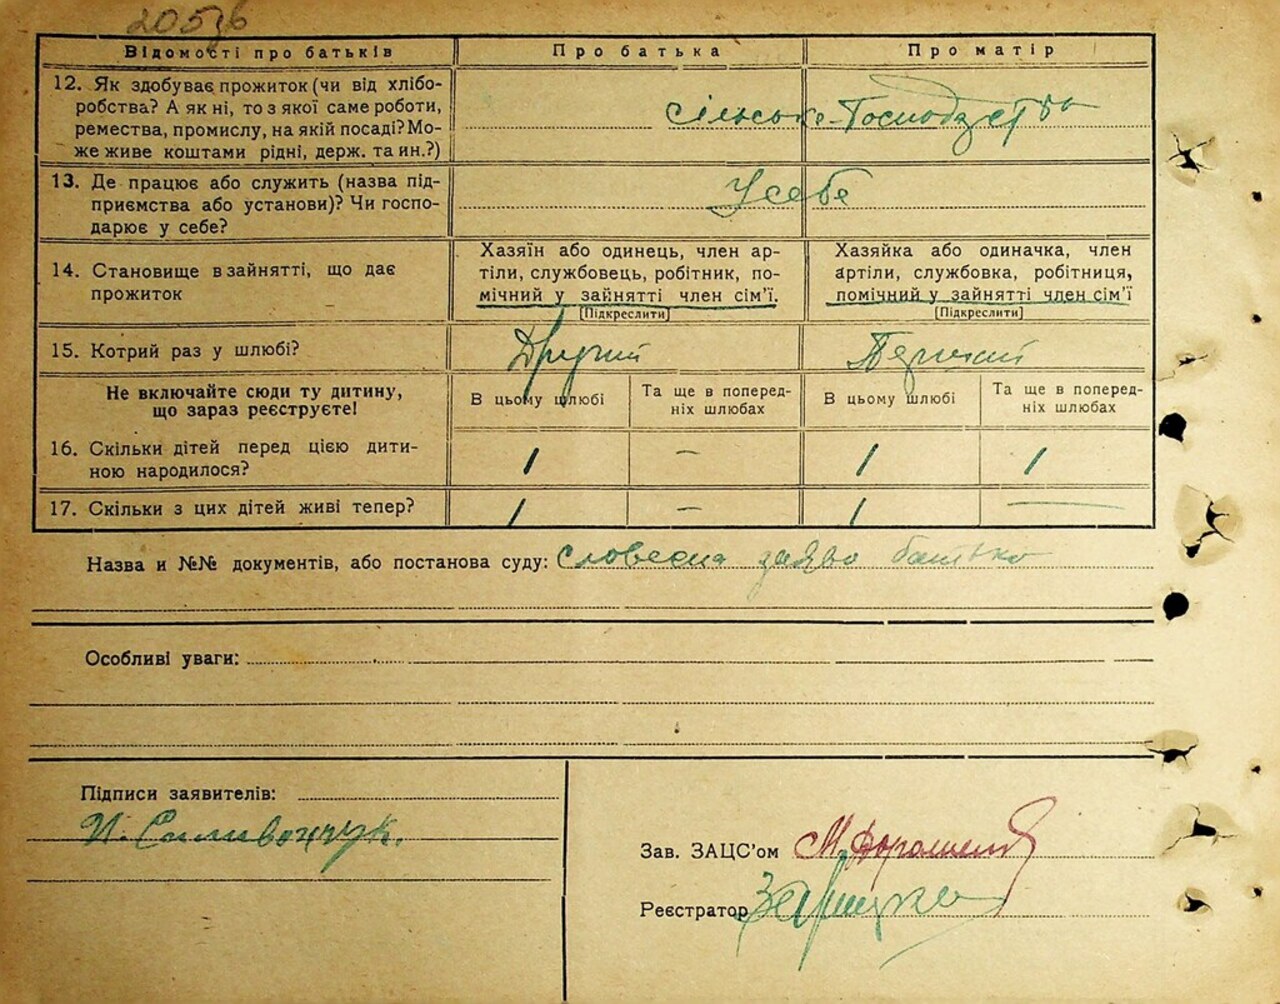 205
Відомості про батьків Про батька Про матір
12. Як здобуває прожиток (чи від хлібо-
робства? А як ні, то з якої саме роботи,
ремества, промислу, на якій посаді? Мо-
же живе коштами рідні, держ. та ин.?)
сільське-Господарство
13. Де працює або служить (назва під-
приємства або установи)? Чи госпо-
дарює у себе?
У себе
14. Становище в зайнятті, що дає
прожиток
Хазяїн або одинець, член ар-
тіли, службовець, робітник, по-
мічний у зайнятті член сім'ї.
[Підкреслити]
Хазяйка або одиначка, член
артіли, службовка, робітниця,
помічний у зайнятті член сім'ї
[Підкреслити]
15. Котрий раз у шлюбі? Другий Перший
Не включайте сюди ту дитину,
що зараз реєструєте!
В цьому шлюбі
Та ще в поперед-
ніх шлюбах
В цьому шлюбі
Та ще в поперед-
ніх шлюбах
16. Скільки дітей перед цією дити-
ною народилося?
1 – 1 1
17. Скільки з цих дітей живі тепер? 1 – 1 —
Назва и №№ документів, або постанова суду: Словесна заява батька
Особливі уваги:
Підписи заявителів:
И. Саливончук.
Зав. ЗАЦС'ом М.
Реєстратор